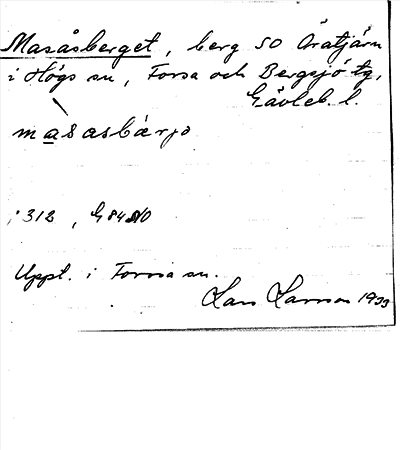 Masåsberget, berg SO Åratjärn
i Högs sn, Forsa och Bergsjö tg,
Gävleb. l.
masasbärjə
312, G 84
Uppt. i Forssa sn.
Lars Larsson 1933